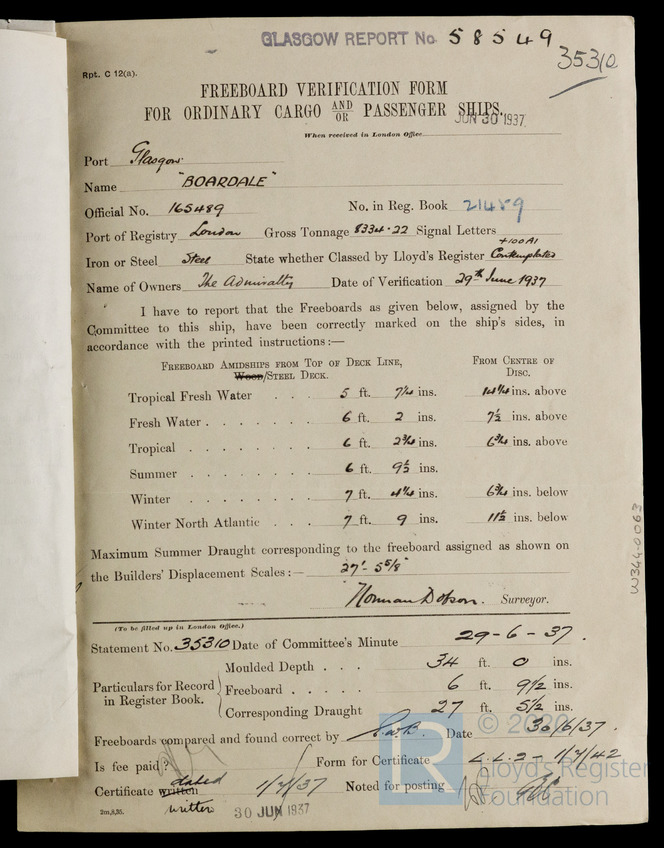 GLASGOW REPORT No. 58549
35310
Rpt. C 12(a).
FREEBOARD VERIFICATION FORM
FOR ORDINARY CARGO AND/OR PASSENGER SHIPS.
JUN 30 1937
When received in London Office
Port Glasgow
Name "BOARDALE"
Official No. 165489 No. in Reg. Book 21459
Port of Registry London Gross Tonnage 8334.22 Signal Letters
+100A1
Iron or Steel Steel State whether Classed by Lloyd's Register Contemplated
Name of Owners The Admiralty Date of Verification 29th June 1937
I have to report that the Freeboards as given below, assigned by the
Committee to this ship, have been correctly marked on the ship's sides, in
accordance with the printed instructions:—
FREEBOARD AMIDSHIPS FROM TOP OF DECK LINE, FROM CENTRE OF
WOOD/STEEL DECK. DISC.
Tropical Fresh Water . . . 5 ft. 7 1/4 ins. 14 1/4 ins. above
Fresh Water . . . . . . . 6 ft. 2 ins. 7 1/2 ins. above
Tropical . . . . . . . 6 ft. 2 3/4 ins. 6 3/4 ins. above
Summer . . . . . . . 6 ft. 9 1/2 ins.
Winter . . . . . . . 7 ft. 4 1/4 ins. 6 3/4 ins. below
Winter North Atlantic . . . 7 ft. 9 ins. 11 1/2 ins. below
Maximum Summer Draught corresponding to the freeboard assigned as shown on
the Builders' Displacement Scales:— 27'- 5 5/8"
Norman Dobson. Surveyor.
(To be filled up in London Office.)
Statement No. 35310 Date of Committee's Minute 29-6-37.
Moulded Depth . . . 34 ft. 0 ins.
Particulars for Record in Register Book. Freeboard . . . . . 6 ft. 9 1/2 ins.
Corresponding Draught 27 ft. 5 1/2 ins.
Freeboards compared and found correct by Date 30/6/37.
Is fee paid? Form for Certificate L.L.2 - 1/7/42
Certificate written dated 1/7/37 Noted for posting
written 30 JUN 1937
2m,8,35.
W344-0063
© 2020
Lloyd's Register
Foundation